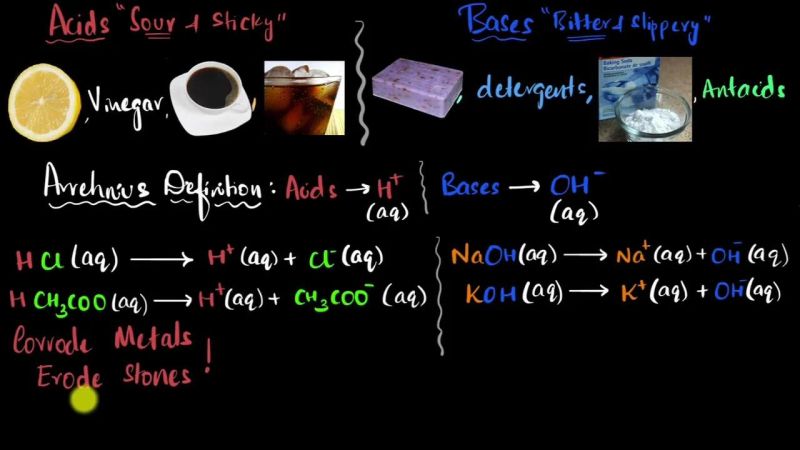 Acids "Sour & Sticky"
Bases "Bitter & slippery"
, Vinegar, ,
, detergents, , Antacids
Baking Soda
Bicarbonate de soude
Arrehnius Definition: Acids → H⁺ (aq)
Bases → OH⁻ (aq)
HCl (aq) → H⁺ (aq) + Cl⁻ (aq)
H CH₃COO (aq) → H⁺ (aq) + CH₃COO⁻ (aq)
Corrode Metals
Erode Stones !
NaOH (aq) → Na⁺ (aq) + OH⁻ (aq)
KOH (aq) → K⁺ (aq) + OH⁻ (aq)